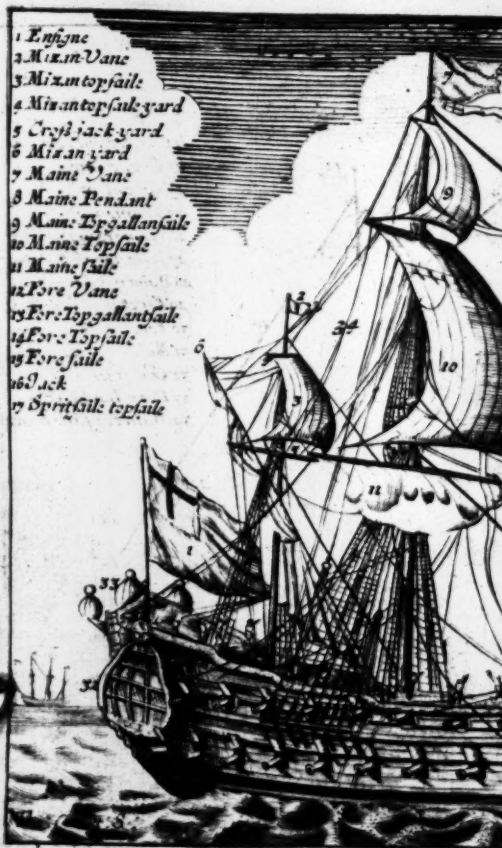 1 Ensigne
2 Mizan Vane
3 Mizan topsaile
4 Mizantopsaile-yard
5 Croß jack-yard
6 Mizan-yard
7 Maine Vane
8 Maine Pendant
9 Maine Topgallansaile
10 Maine Topsaile
11 Maine saile
12 Fore Vane
13 Fore Topgallantsaile
14 Fore Topsaile
15 Fore saile
16 Jack
17 Spritsaile topsaile
7
9
2
24
6
10
3
5
11
1
33